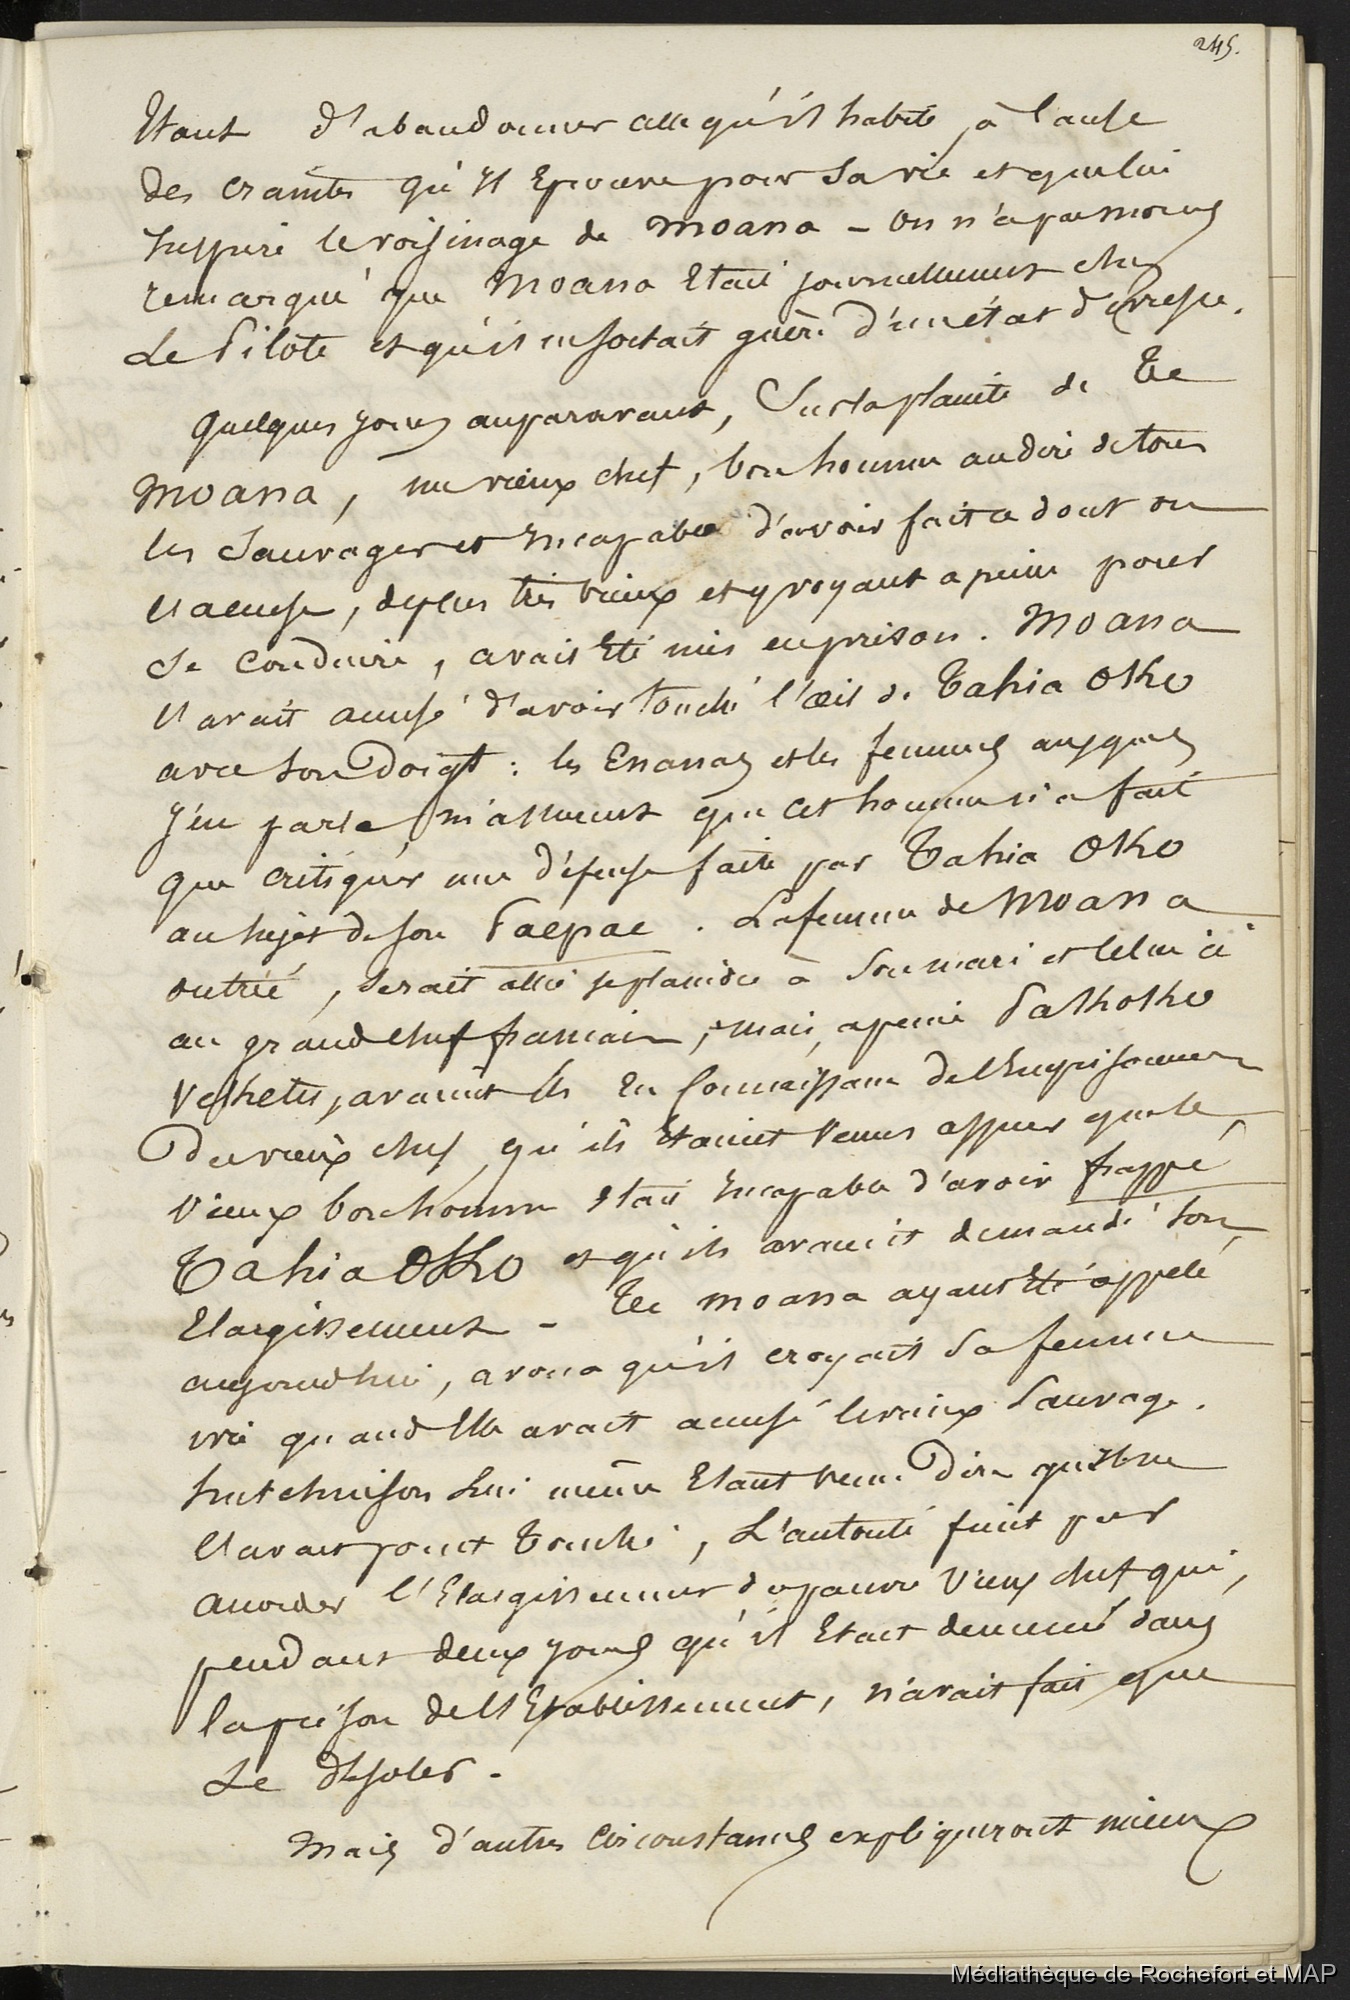 245.
Etant d'abandonner celle qu'il habite, à Cause
des craintes qu'il Eprouve pour sa vie et que lui
Inspire le voisinage de Moana - On n'a pas moins
remarqué que Moana Etait journellement chez
Le Pilote et qu'il ne sortait guère d'un état d'ivresse.
Quelques jours auparavant, Sur la plainte de Te
Moana, un vieux chef, bon homme au dire de tous
les Sauvages et Incapable d'avoir fait ce dont on
l'accuse, de plus très vieux et y voyant a peine pour
Se Conduire, avait Eté mis en prison. Moana
l'avait accusé d'avoir touché l'œil de Tahia Oko
avec son Doigt : les Enanas et les femmes auxquels
j'en parle, m'assurent que cet homme n'a fait
que critiquer une défense faite par Tahia Oko
au sujet de son Paepae. La femme de Moana
outrée, serait allé se plaindre à Son mari et celui ci
au grand chef français, mais, a peine Pakoko
Veketu, avaient ils Eu Connaissance de l'Emprisonnement
Du vieux chef, qu'ils Etaient venus assurer que le
vieux bonhomme était Incapable d'avoir frappé
Tahia Oko et qu'ils avaient demandé son
Elargissement - Te Moana ayant Eté appelé
aujourdhui, avoua qu'il croyait Sa femme
ivre quand Elle avait accusé le vieux Sauvage.
Hutchinson Lui même Etant venu Dire qu'il ne
l'avait point Touché, L'autorité finit par
accorder l'Elargissement du pauvre Vieux chef qui,
pendant deux jours qu'il Etait demeuré dans
la prison de l'Etablissement, n'avait fait que
Se désoler -
Mais d'autres Circonstances expliqueront mieux
Médiathèque de Rochefort et MAP